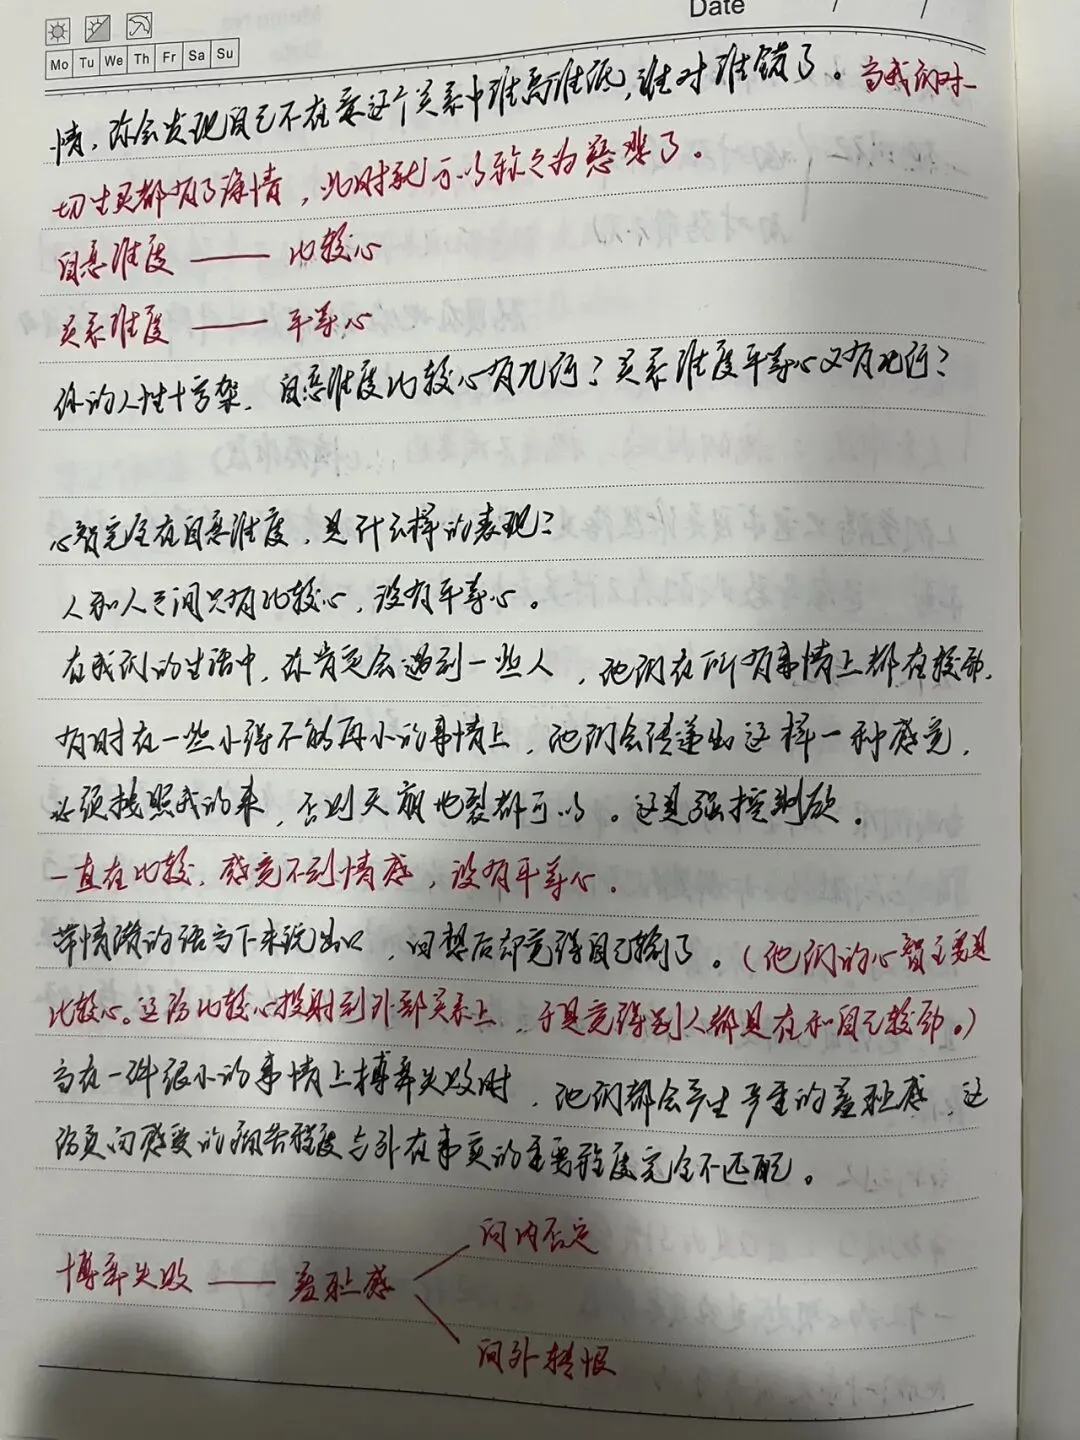 Date / /
Mo Tu We Th Fr Sa Su
情，你会发现自己不在乎这个关系中谁高谁低，谁对谁错了。当我们对一
切生灵都有了深情，此时就可以称之为慈悲了。
自恋维度 —— 比较心
关系维度 —— 平等心
你的人性十字架，自恋维度比较心有几何？关系维度平等心又有几何？
心智完全在自恋维度，是什么样的表现？
人和人之间只有比较心，没有平等心。
在我们的生活中，你肯定会遇到一些人，他们在所有事情上都在较劲，
有时在一些小得不能再小的事情上，他们会传递出这样一种感觉，
必须按照我的来，否则天崩地裂都可以。这是强控制欲。
一直在比较，感觉不到情感，没有平等心。
带情绪的话当下未说出口，回想后却觉得自己输了。（他们的心智主要是
比较心。这份比较心投射到外部关系上，于是觉得别人都是在和自己较劲。）
当在一件很小的事情上搏弈失败时，他们都会产生严重的羞耻感，这
份负向感受的痛苦程度与外在事实的重要程度完全不匹配。
博弈失败 —— 羞耻感
向内否定
向外转恨